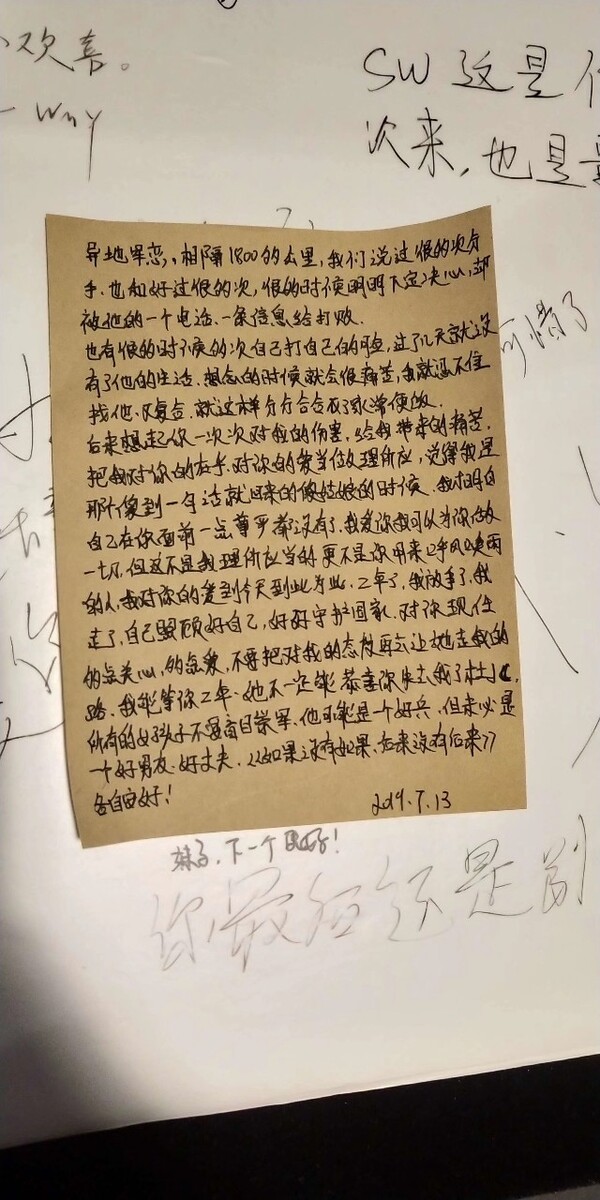 欢喜。
Wny
SW 这是
次来，也是
异地军恋，相隔1800的公里，我们说过很的次分
手，也和好过很的次，很的时候明明下定决心，却
被他的一个电话、一条信息给打败.
也有很的时候的次自己打自己的脸，过了几天就没
有了他的生活、想念的时候就会很痛苦，我就忍不住
找他、又复合、就这样分分合合
后来想起你一次次对我的伤害，给我带来的痛苦.
把我对你的在乎、对你的爱当做理所应，觉得我是
那个像到一句话就回来的傻姑娘的时候 我才明白
自己在你面前一点尊严都没有了，我爱你我可以为你做
一切，但这不是我理所应当的 更不是你用来呼风唤雨
的人，我对你的爱到今天到此为止、2年了，我放手了，我
走了，自己照顾好自己，好好守护国家、对你现任
的点关心，的点爱，不要把对我的态度再去让她走我的
路、我能等你2年、她不一定能 恭喜你失去我了
所有的女孩子不要盲目崇军、他可能是一个好兵、但未必是
一个好男友、好丈夫、如果没有如果、后来没有后来
各自安好！
2019.7.13
可惜了
妹子，下一个更好！
你最后还是